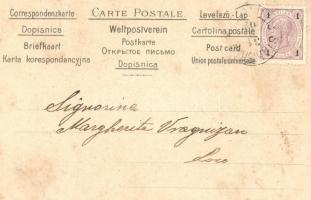 Correspondenzkarte
Dopisnica
Briefkaart
Karta korespondencyjna
CARTE POSTALE
Weltpostverein
Postkarte
ОТКРЫТОЕ ПИСЬМО
Dopisnica
Levelező-Lap
Cartolina postale
Post card
Union postale universelle
1 1
1 1
Signorina
Margherita
Loco